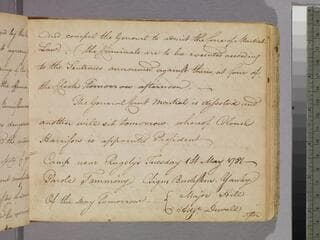 and compel the General to admit the force of Martial
Law. The Criminals are to be executed according
to the Sentences announced against them at four of
the Clock Tomorrow afternoon
The General Court Martial is dissolved and
another will sit tomorrow whereof Colonel
Harrison is appointed President
Camp near Rugelys Tuesday 1st May 1781
Parole Fleming
Of the day tomorrow { Major Hill